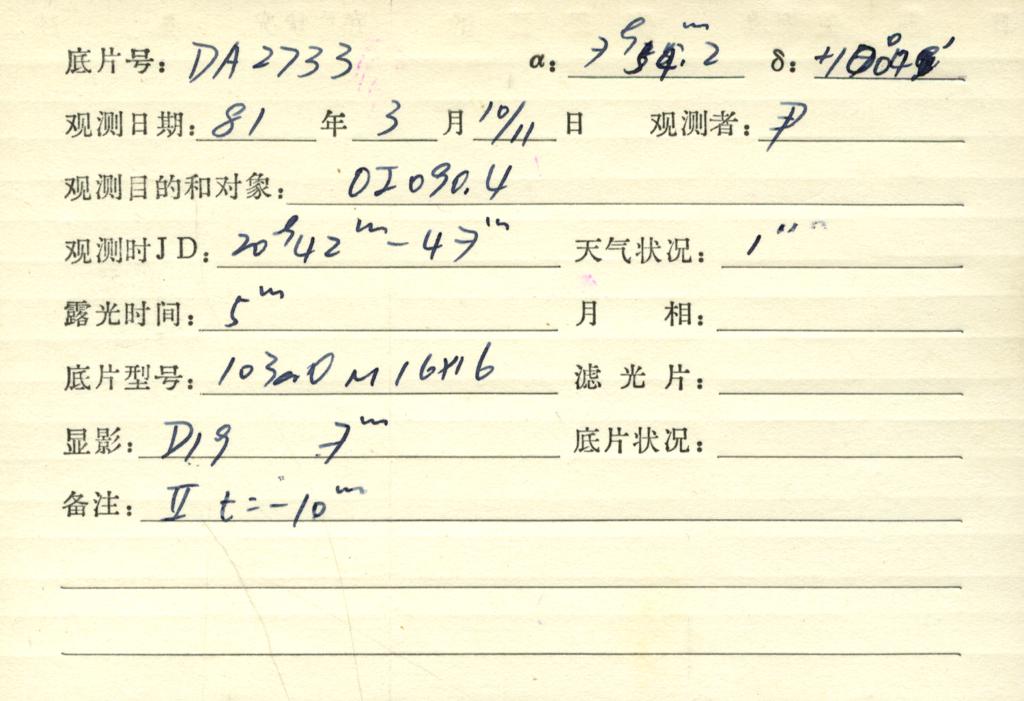 底片号: DA2733 α: 7ʰ54ᵐ.2 δ:
观测日期: 81 年 3 月 10/11 日 观测者:
观测目的和对象: OI 090.4
观测时JD: 20ʰ42ᵐ-47ᵐ 天气状况: 1"
露光时间: 5ᵐ 月 相:
底片型号: 103aO M 16×16 滤 光 片:
显影: D19 7ᵐ 底片状况:
备注: Ⅱ t=-10ᵐ